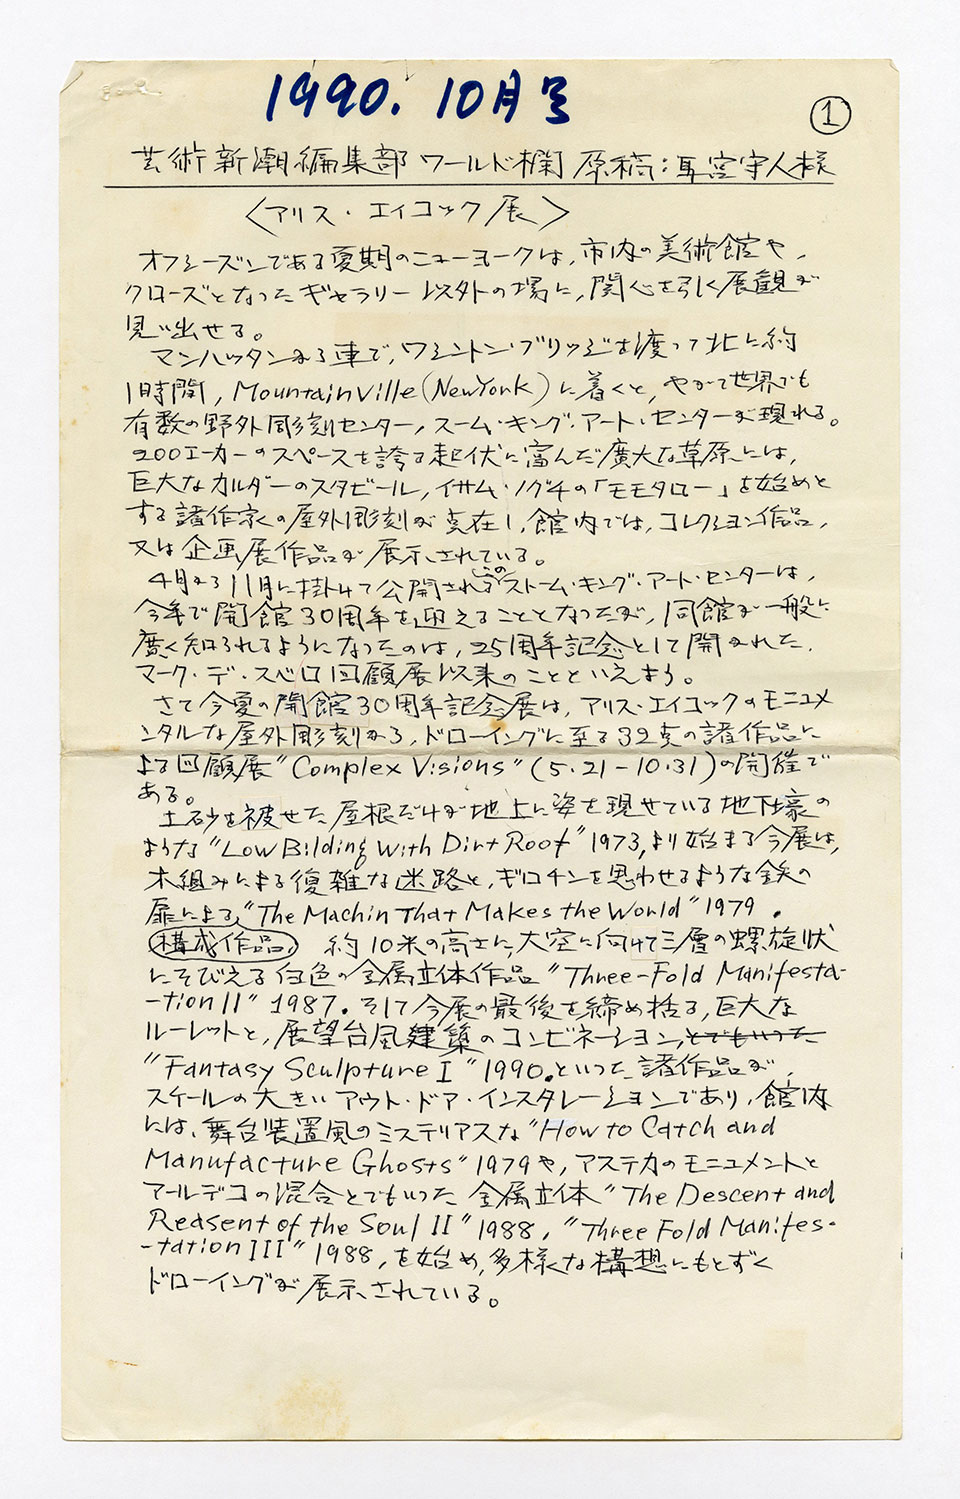 1990. 10月号
①
芸術新潮編集部 ワールド欄 原稿:
〈アリス・エイコック展〉
オフシーズンである夏期のニューヨークは、市内の美術館や、
クローズとなったギャラリー以外の場に、関心を引く展観が
見い出せる。
マンハッタンから車で、ワシントン・ブリッジを渡って北に約
1時間, Mountainville (New York) に着くと、やがて世界でも
有数の野外彫刻センター, スーム・キング・アート・センターが現れる。
200エーカーのスペースを誇る起伏に富んだ廣大な草原には、
巨大なカルダーのスタビール, イサム・ノグチの「モモタロー」を始めと
する諸作家の屋外彫刻が点在し, 館内では, コレクション作品,
又は企画展作品が展示されている。
4月から11月に掛けて公開されるこのストーム・キング・アート・センターは、
今年で開館30周年を迎えることとなったが, 同館が一般に
廣く知られるようになったのは, 25周年記念として開かれた、
マーク・デ・スベロ回顧展以来のことといえよう。
さて今夏の開館30周年記念展は、アリス・エイコックのモニュメ
ンタルな屋外彫刻から, ドローイングに至る32点の諸作品に
よる回顧展"Complex Visions" (5・21-10・31)の開催で
ある。
土砂を被せた屋根だけが地上に姿を現せている地下壕の
ような"Low Bilding with Dirt Roof" 1973, より始まる今展は,
木組みによる復雑な迷路と, ギロチンを思わせるような鉄の
扉による, "The Machin That Makes the World" 1979.
構成作品, 約10米の高さに, 大空に向けて三層の螺旋状
にそびえる白色の金属立体作品 "Three-Fold Manifesta-
-tion II" 1987. そして今展の最後を締め括る, 巨大な
ルーレットと, 展望台風建築のコンビネーション, とでもいった
"Fantasy Sculpture I" 1990. といった諸作品が,
スケールの大きいアウト・ドア・インスタレーションであり, 館内
には, 舞台装置風のミステリアスな "How to Catch and
Manufacture Ghosts" 1979や, アステカのモニュメントと
アールデコの混合とでもいった金属立体 "The Descent and
Reasent of the Soul II" 1988, "Three Fold Manifes-
-tation III" 1988, を始め, 多様な構想にもとずく
ドローイングが展示されている。